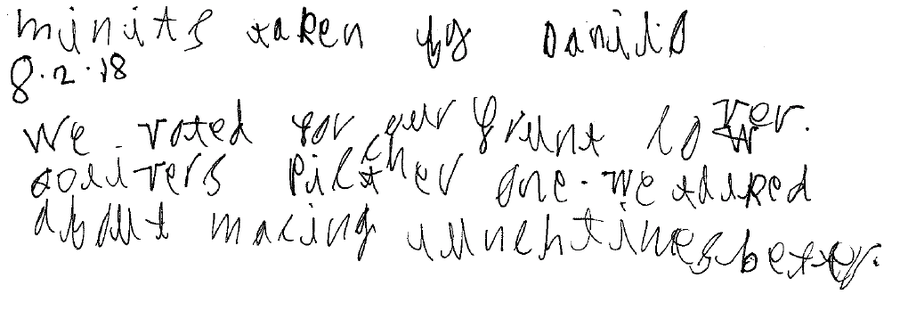 minits taken by Danilo
8.2.18
We voted for our frunt cover.
Olivers Pilcher one. we talked
about making lunchtimes better.